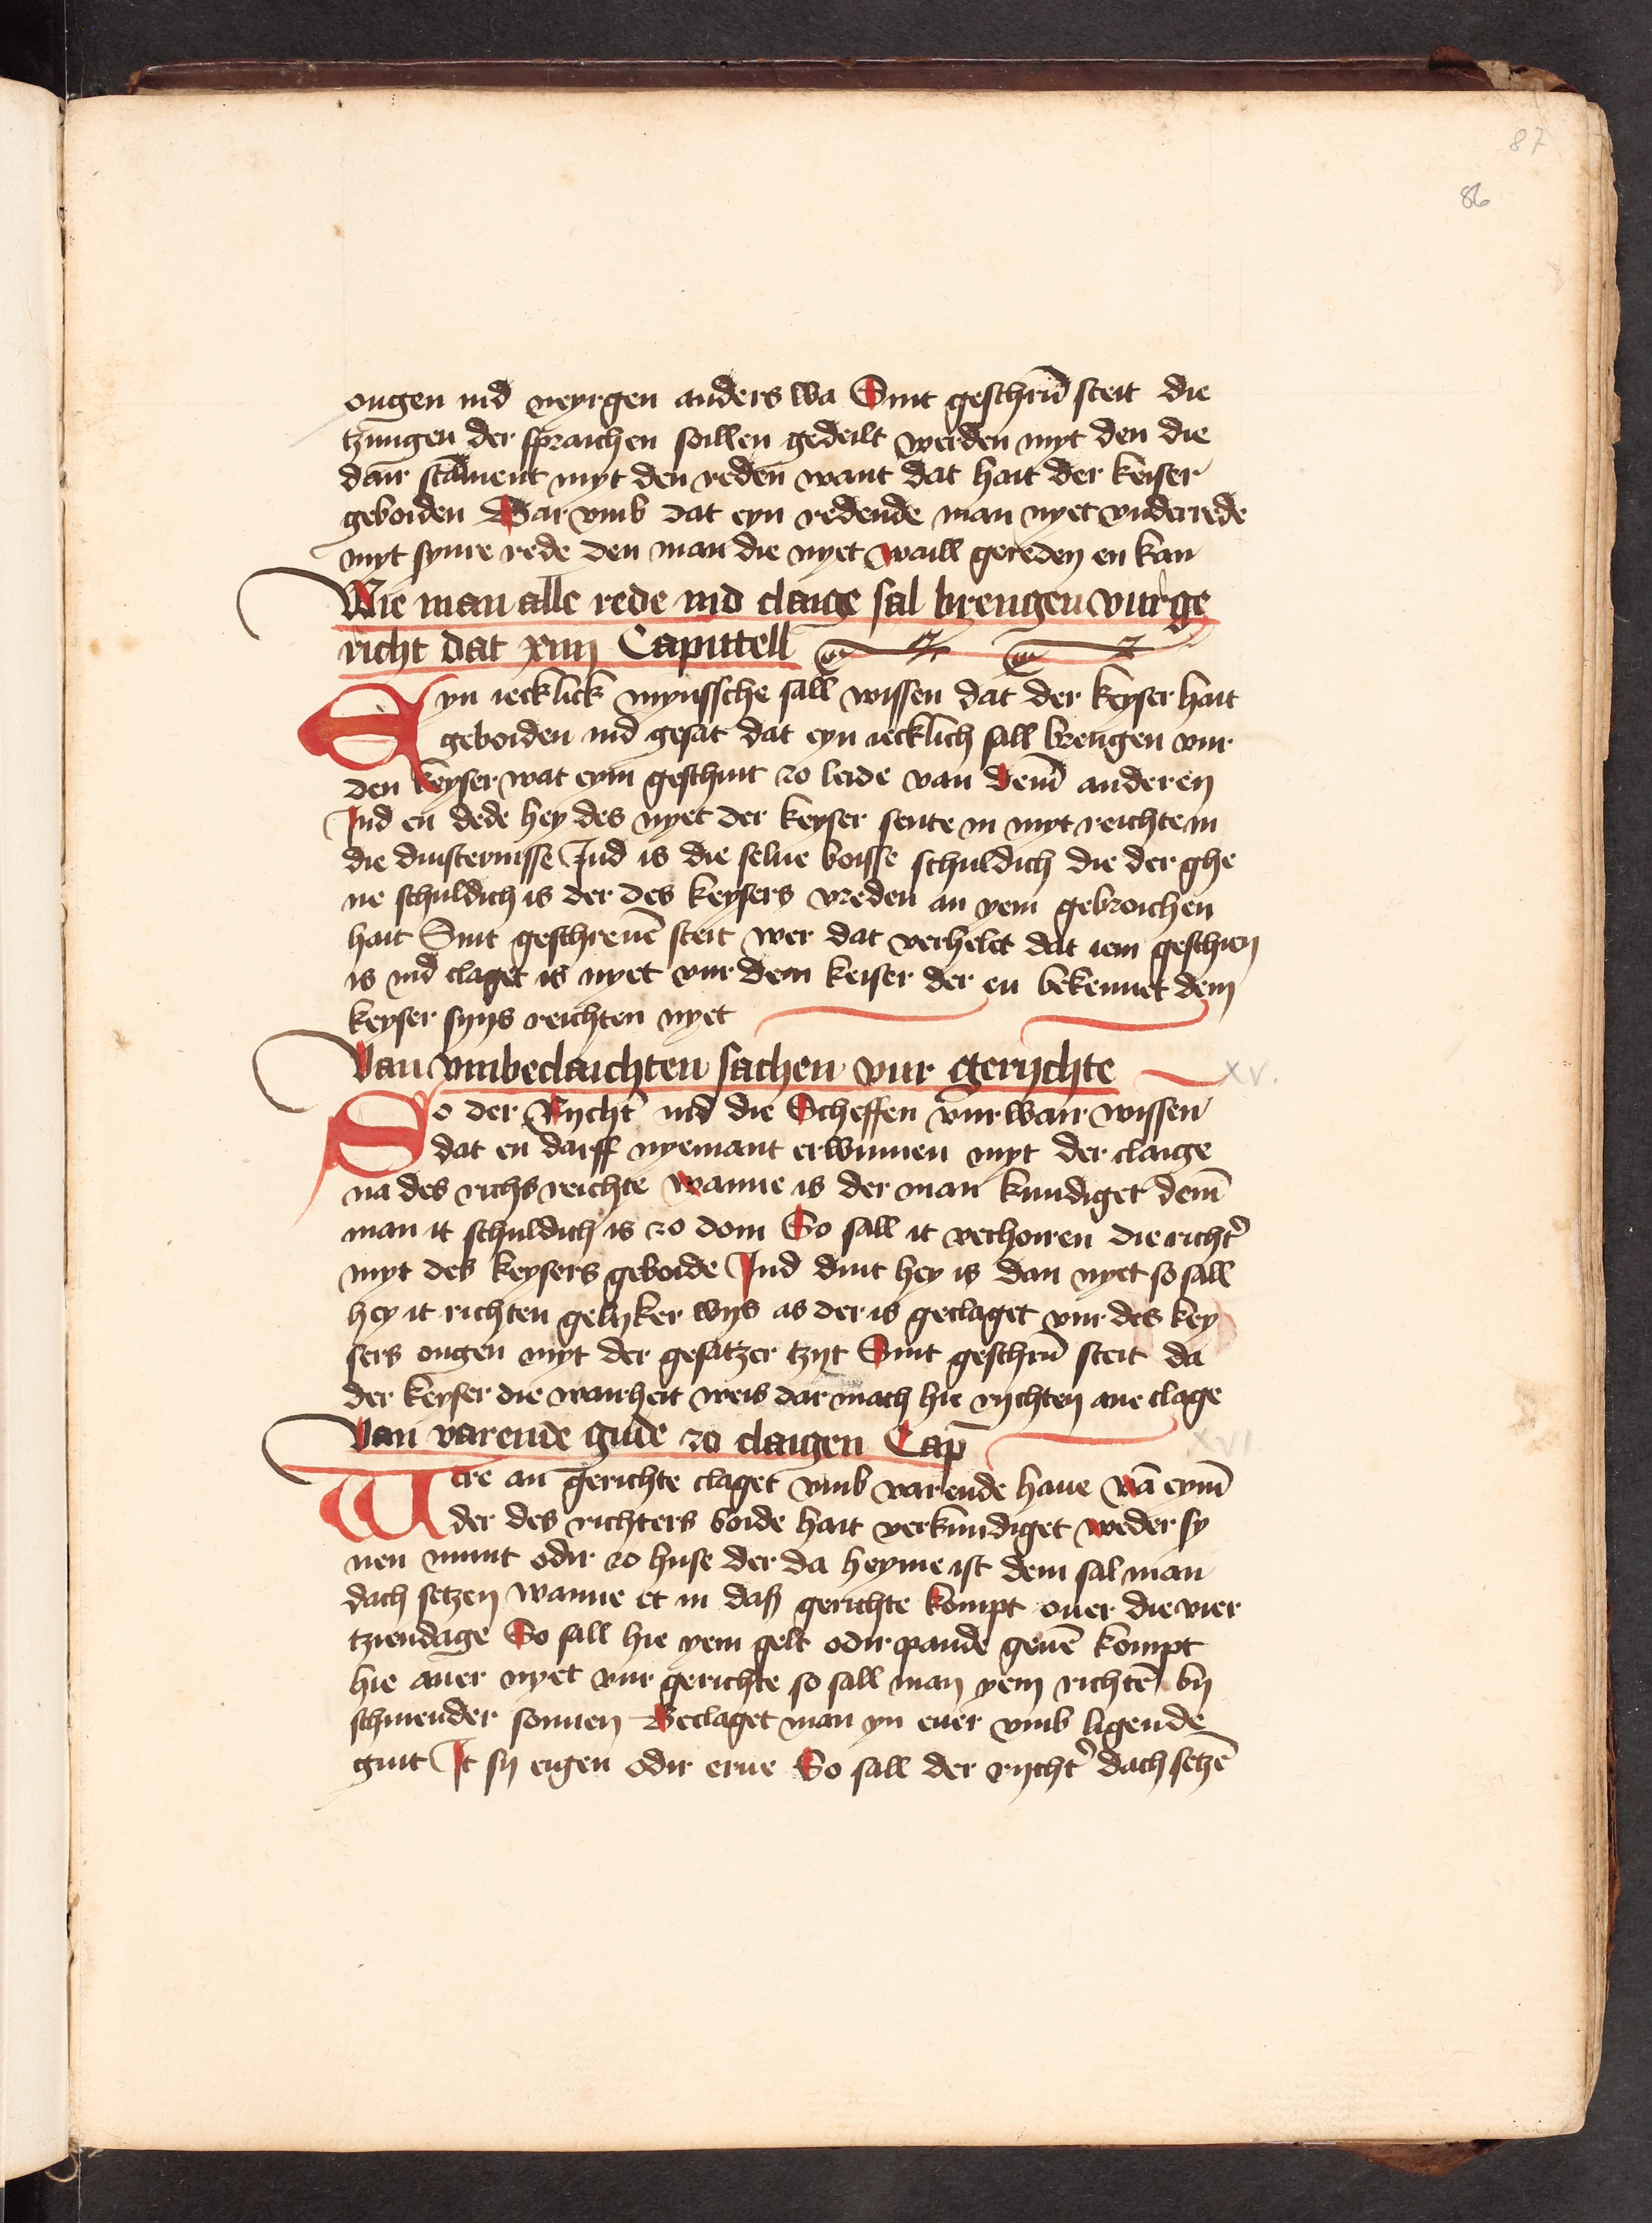 87
86
ougen ind neyrgen anders wa Sint geschrū steit die
tzungen der spraichen soillen gedeilt werden myt den die
dair stament myt den reden want dat hait der keiser
geboiden War vmb dat eyn redende man nyet vnderrede
myt synre rede den man die nyet waill gereden en kan
Wie man alle rede ind claige sal brengen vur ge
richt dat xiiij Capittell
Eyn iecklick mynssche sall wissen dat der keyser hait
geboiden ind gesat dat eyn iecklich sall brengen vur
den keyser wat eym geschuit zo leide van dem̄ anderen
Ind en dede hey des nyet der keyser sente in myt reichte in
die duisternisse Ind is die selue boisse schuldich die der ghe
ne schuldich is der des keysers vreden an yem gebroichen
hait Sint geschreuē steit wer dat verhelet dat iem geschien
is ind claget is nyet vur dem keiser der en bekennet dem
keyser syns reichten nyet
Van vmbeclaichten sachen vur gerijchte
xv.
So der Rycht' ind die Scheffen vur wair wissen
dat en darff nyemant erwinnen myt der claige
na des richs reichte wanne is der man kundiget dem̄
man it schuldich is zo doin So sall it verhoiren die richt'
myt des keysers geboide Ind duit hey is dan nyet so sall
hey it richten gelyker wys as der is geclaget vur des key
sers ougen myt der gesatzer tzyt Sint geschrū steit da
der keyser die wairheit weis dar mach hie rychten ane clage
Van varende gude zo claigen Cap̄
xvi.
Were an gerichte claget vmb varende haue vā eym̄
der des richters boide hait verkundiget weder sy
nen munt odir zo huse der da heyme ist dem sal man
dach setzen wanne et in dass gerichte kompt ouer die vier
tziendage So sall hie yem gelt odir pande geuē kompt
hie auer nyet vur gerichte so sall man yem richtē by
schinender sonnen Beclaget man yn euer vmb ligende
guit It sy eigen odir erue So sall der rycht' dach setzē